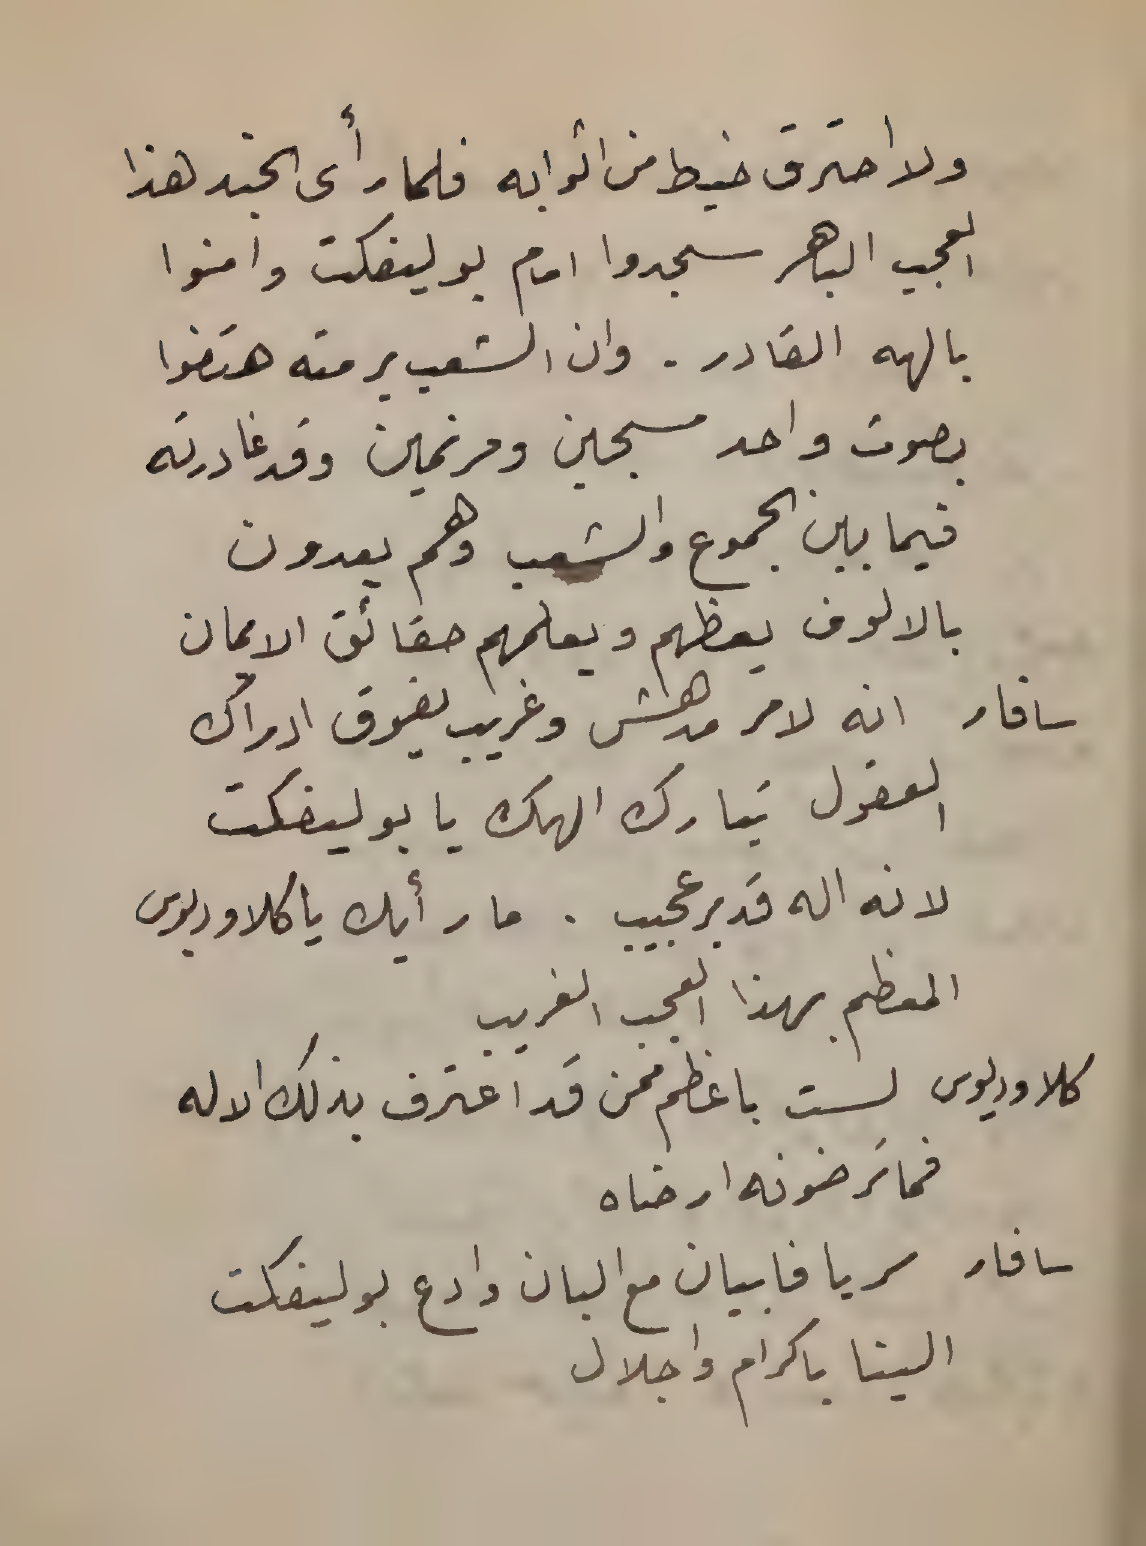 ولا احترق خيط من اثوابه فلما رأى الجند هذا
العجب الباهر سجدوا امام بوليفكت وامنوا
بالهه القادر . وان الشعب برمته هتفوا
بصوت واحد مسبحين ومرنمين وقد غادرته
فيما بين الجموع والشعب وهم يعدون
بالالوف يعظهم ويعلمهم حقائق الايمان
سافار انه لامر مدهش وغريب يفوق ادراك
العقول تبارك الهك يا بوليفكت
لانه اله قدير عجيب . ما رأيك يا كلاوديوس
المعظم بهذا العجب الغريب
كلاوديوس لست باعظم ممن قد اعترف بذلك الاله
فما ترضونه ارضاه
سافار سر يا فابيان مع البان وادع بوليفكت
الينا باكرام واجلال